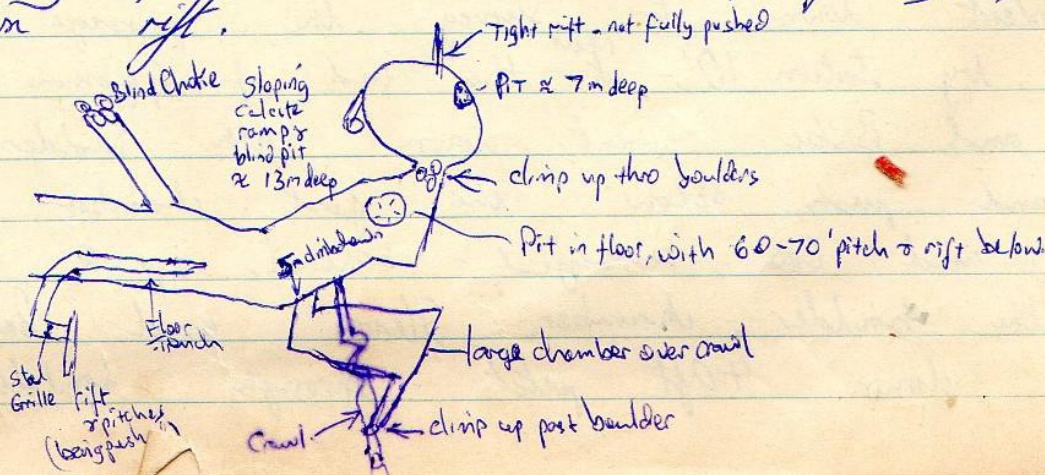 rift.
Tight rift - not fully pushed
Blind Choke
Sloping
calcite
ramp &
blind pit
≈ 13m deep
Pit ≈ 7m deep
climb up thro boulders
Pit in floor, with 60-70' pitch & rift below.
Floor
Trench
large chamber over crawl
Steel
Grille
rift
& pitches
(being push
Crawl
climb up past boulder